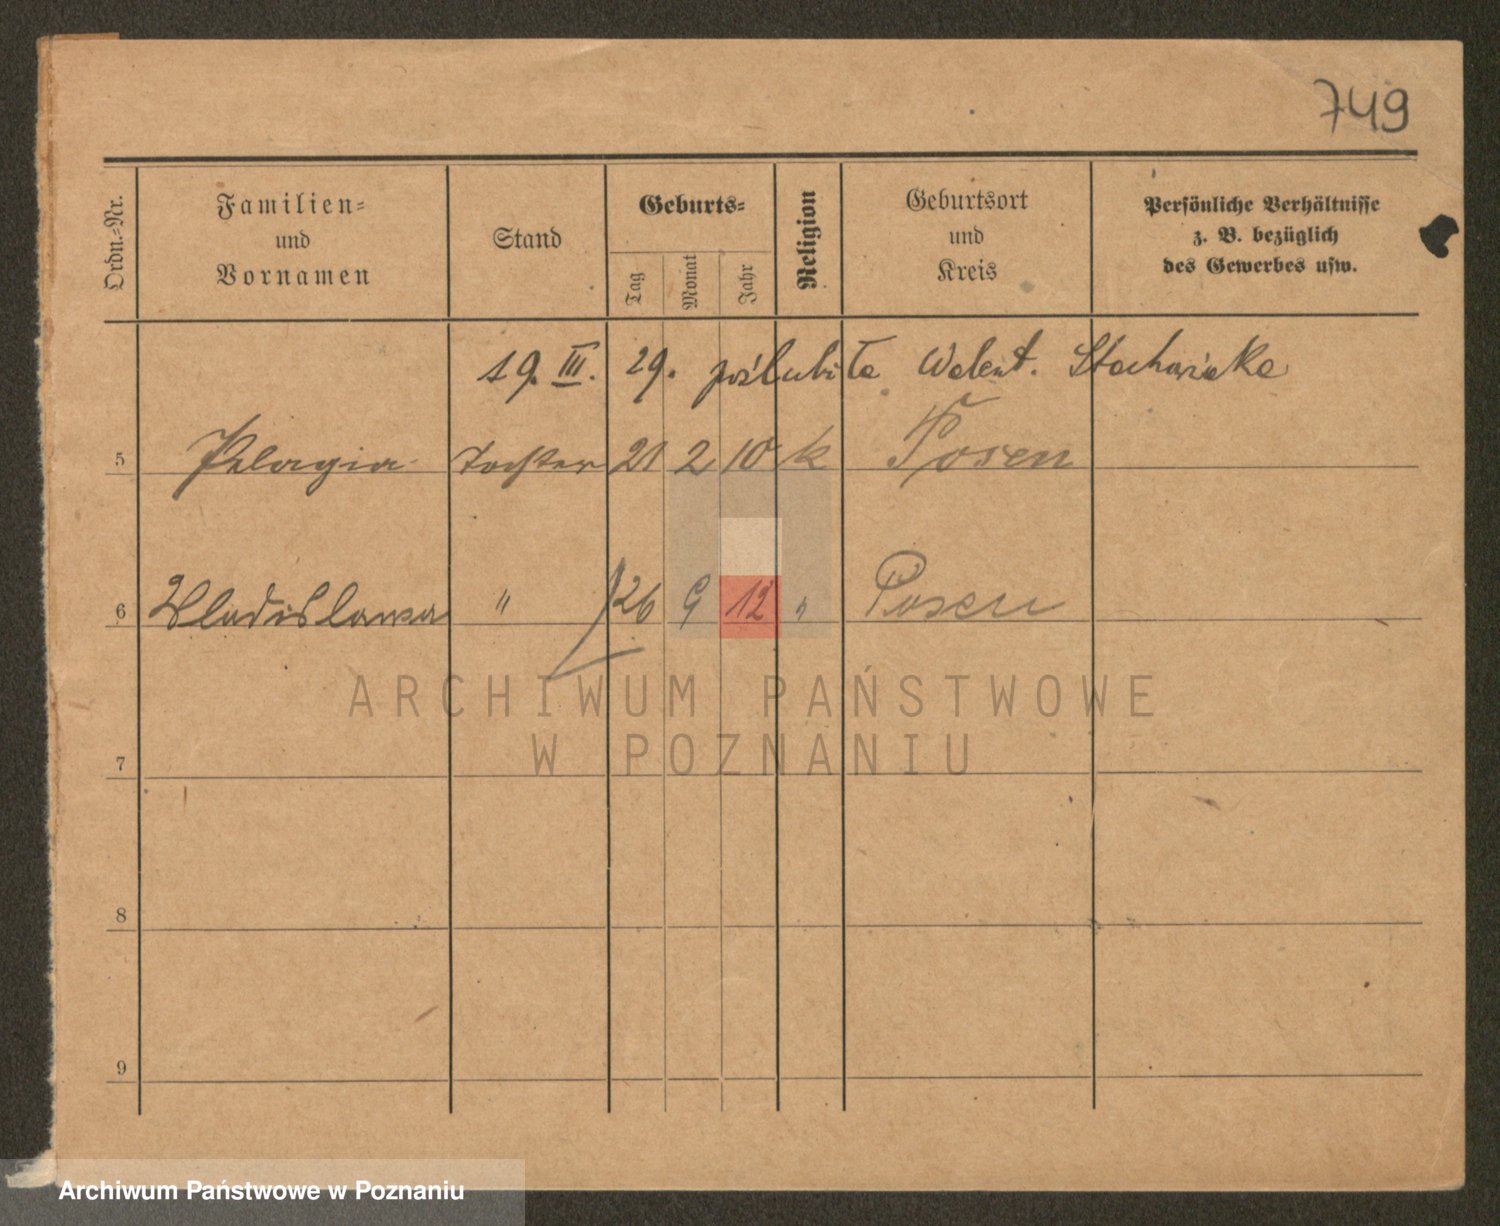 749
Ordn.-Nr.
Familien-
und
Vornamen
Stand
Geburts-
Tag
Monat
Jahr
Religion
Geburtsort
und
Kreis
Persönliche Verhältnisse
z. B. bezüglich
des Gewerbes usw.
19. III. 29. poślubiła Walent. Stachowiaka
5 Pelagia Tochter 21 2 10 k Posen
6 Wladislawa " 26 9 12 " Posen
7
8
9
ARCHIWUM PAŃSTWOWE
W POZNANIU
Archiwum Państwowe w Poznaniu